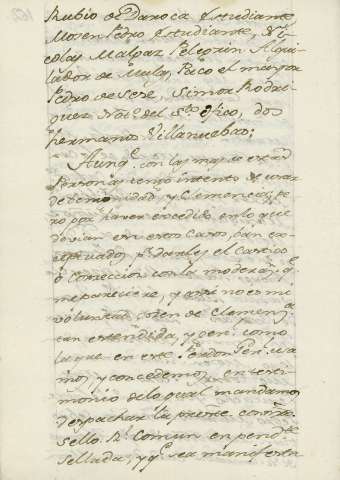 Rubio de Daroca Estudiante,
Mosen Pedro Estudiante, Ni-
colas Malpaz Pelegrin Alqui-
lador de Mula, Paco el menor
Pedro de Sese, Simon Rodri-
guez Not.o del S.to ofico, dos
hermanos Villanuebas;
Aunq.e con las mas
Personas tengo intento de usar
de benignidad, y Clemencia; pe
ro por haver excedido en lo que
devian en estos Casos, van ex
ceptuados, p.a darles el Castigo
ó Correccion con la moderaz.n q.e
me pareciere, y assi no es mi
voluntad
tan estendida, y gen.l como
la que en este Perdon Gen.l usa
mos, y concedemos, en testi
monio de lo qual mandamos
despachar la pre.te con n.ro
sello R.l Comun en pend.te
sellada; y q.e sea manifesta